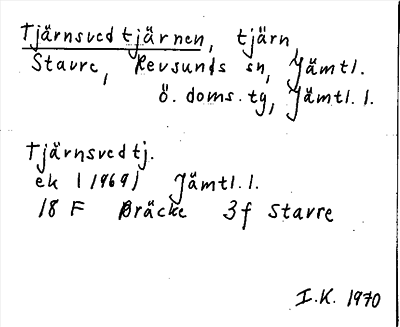 Tjärnsvedtjärnen, tjärn,
Stavre, Revsunds sn, Jämtl.
ö. doms. tg, Jämtl. l.
Tjärnsvedtj.
ek (1969) Jämtl. l.
18 F Bräcke 3f Stavre
I.K. 1970